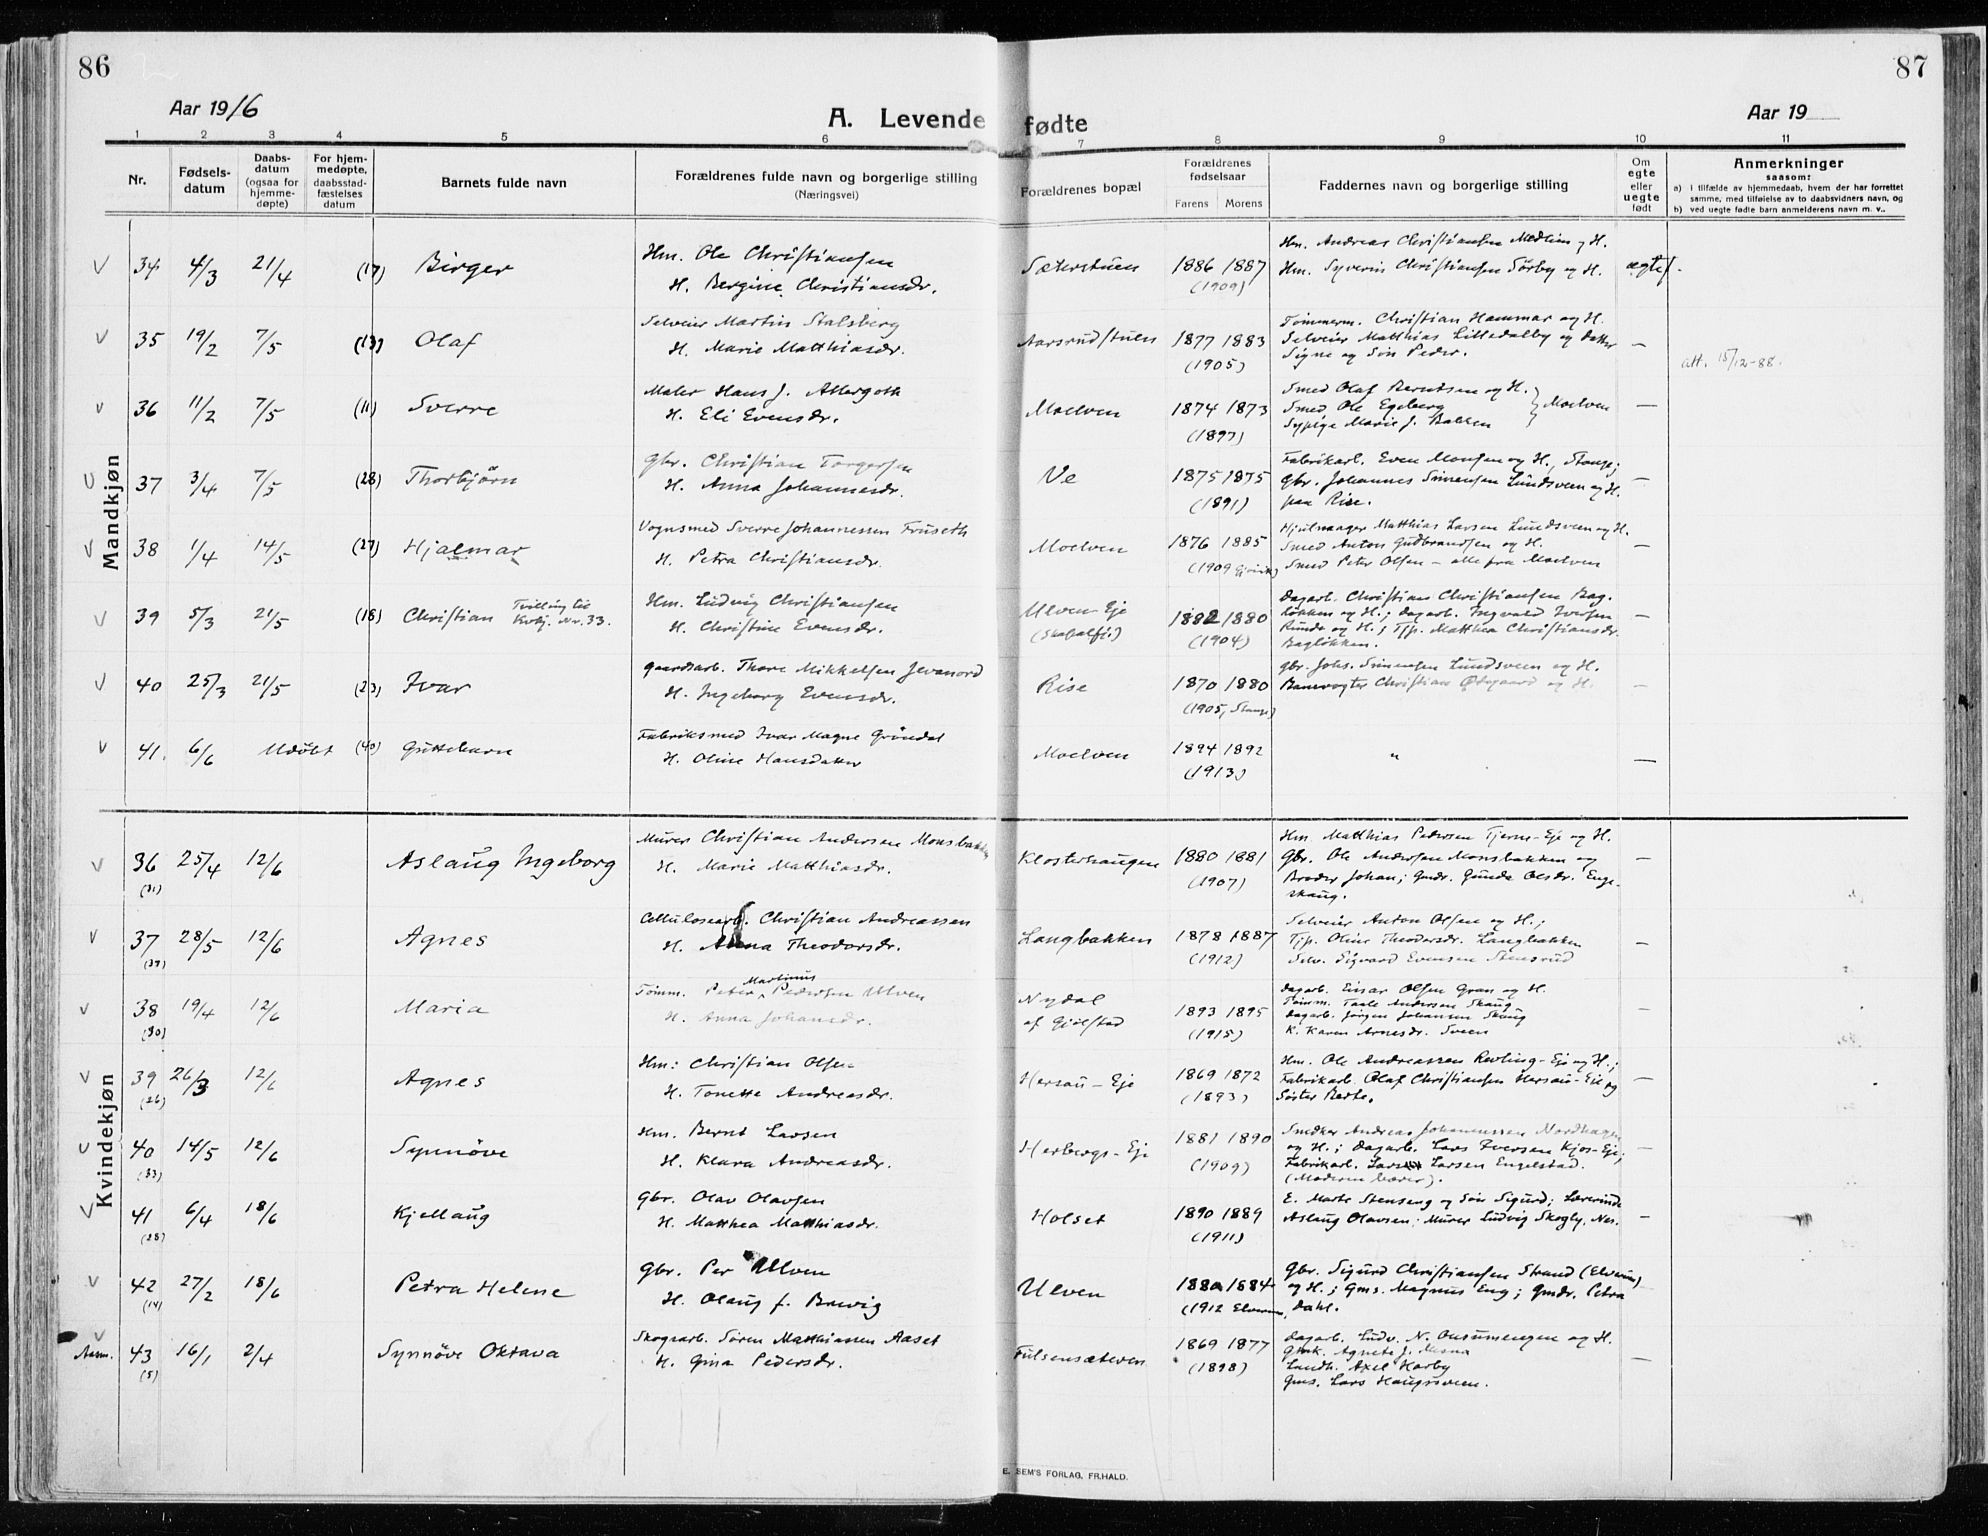 86
87
Aar 1916
A. Levende fødte
Aar 19
1 2 3 4 5 6 7 8 9 10 11
Nr.
Fødsels-
datum
Daabs-
datum
(ogsaa for
hjemme-
døpte)
For hjem-
medøpte,
daabsstad-
fæstelses
datum
Barnets fulde navn
Forældrenes fulde navn og borgerlige stilling
(Næringsvei)
Forældrenes bopæl
Forældrenes
fødselsaar
Farens Morens
Faddernes navn og borgerlige stilling
Om
egte
eller
uegte
født
Anmerkninger
saasom:
a) i tilfælde av hjemmedaab, hvem der har forrettet
samme, med tilføielse av to daabsvidners navn, og
b) ved uegte fødte barn anmelderens navn m. v..
Mandkjøn
Hm. Andreas Christiansen Medlien og H.
34 4/3 21/4 (17) Birger Hm. Ole Christiansen
H. Bergine Christiansdr.
Sæterstuen 1886 1887
(1909)
Hm. Syverin Christiansen Sörby og H. ægtef.
35 19/2 7/5 (13) Olaf Selveier Martin Stalsberg
H. Marie Matthiasdr.
Aarsrudstuen 1877 1883
(1905)
Tömmerm. Christian Hammar og H.
Selveier Matthias Lilledalby og datter
Signe og Sön Peder.
—
att. 15/12-88.
36 11/2 7/5 (11) Sverre Maler Hans J. Attergoth
H. Eli Evensdr.
Moelven 1874 1873
(1897)
Smed Olaf Berntsen og H.
Smed Ole Egeberg
Sypige Marie J. Bakken
Moelven —
37 3/4 7/5 (28) Thorbjörn Gbr. Christian Torgersen
H. Anna Johannesdr.
Ve 1875 1875
(1891)
Fabrikarb. Even Monsen og H., Stange;
Gbr. Johannes Simensen Lundsveen og H.
paa Rise.
—
38 1/4 14/5 (27) Hjalmar Vognsmed Sverre Johannessen Fruseth
H. Petra Christiansdr.
Moelven 1876 1885
(1909 Gjövik)
Hjulmager Matthias Larsen Lundsveen og H.
Smed Anton Gudbrandsen og H.
Smed Peter Olsen — alle fra Moelven
—
39 5/3 21/5 (18) Christian Tvilling til
Kvkj. Nr. 33.
Hm. Ludvig Christiansen
H. Christine Evensdr.
Ulven-Eje
1882 1880
(1904)
Dagarb. Christian Christiansen Bag-
lökken og H.; dagarb. Ingvald Iversen
Runde og H.; Tjp. Matthea Christiansdr.
Baglökken.
—
40 25/3 21/5 (23) Ivar Gaardsarb. Thore Mikkelsen Jevanord
H. Ingeborg Evensdr.
Rise 1870 1880
(1905, Stange)
Gbr. Johs. Simensen Lundsveen og H.
Banevogter Christian Östgaard og H.
—
41. 6/6 Udöbt (40) Guttebarn Fabriksmed Ivar Magne Gröndal
H. Oline Hansdatter
Moelven 1894 1892
(1913)
"
—
Kvindekjøn
36 25/4 12/6 Aslaug Ingeborg
(31)
Murer Christian Andersen Monsbakken
H. Marie Matthiasdr.
Klosterhaugen 1880 1881
(1907)
Hm. Matthias Pedersen Tjerne-Eje og H.
Gbr. Ole Andersen Monsbakken og
Broder Johan; Gmdr. Gunda Olsdr. Enge-
skaug.
—
37 28/5 12/6 Agnes
(37)
Cellulosearb. Christian Andreassen
H. Anna Theodorsdr.
Langbakken 1878 1887
(1912)
Selveier Anton Olsen og H.;
Tjp. Oline Theodorsdr. Langbakken
Selv. Sigvard Evensen Stensrud
—
38 19/4 12/6 Maria
(30)
Tömm. Peter Martinus Pedersen Ulven
H. Anna Johansdr.
Nydal
af Gjölstad
1893 1895
(1915)
Dagarb. Einar Olsen Gran og H.
Tömm. Taale Andersen Skaug
Dagarb. Jörgen Johansen Skaug
K. Karen Arnesdr. Sveen
—
39 26/3 12/6 Agnes
(26)
Hm: Christian Olsen
H. Tonette Andreasdr.
Hersau-Eje 1869 1872
(1893)
Hm. Ole Andreassen Revling-Eje og H.;
Fabrikarb. Olaf Christiansen Hersau-Eje og
Söster Berte.
—
40 14/5 12/6 Synnöve
(33)
Hm. Bernt Larsen
H. Klara Andreasdr.
Herbergs-Eje 1881 1890
(1909)
Snedker Andreas Johannessen Nordhagen
og H.; Dagarb. Lars Iversen Kjos-Eje;
Fabrikarb. Lars Larsen Engelstad.
(Moderen bærer).
—
41 6/4 18/6 Kjellaug
(28)
Gbr. Olav Olavsen
H. Matthea Matthiasdr.
Holset 1890 1889
(1911)
E. Marte Stenseng og Sön Sigurd; Lærerinde
Aslaug Olavsen; Murer Ludvig Skogly, Nes.
—
42 27/2 18/6 Petra Helene
(14)
Gbr. Per Ulven
H. Olaug f. Brevig
Ulven 1880 1884
(1912 Elverum)
Gbr. Sigurd Christiansen Strand (Elverum)
og H.; Gms. Magnus Eng; Gmdr. Petra
Dahl.
—
Anm. 43 16/1 2/4 Synnöve Oktava
(5)
Skogsarb. Sören Matthiassen Aaset
H. Gina Pedersdr.
Fulsensæteren 1869 1877
(1898)
Dagarb. Ludv. N. Onsumengen og H.
Gmk. Agnete J. Mesna
Landh. Axel Harby
Gms. Lars Haugsveen.
—
E. SEM'S FORLAG, FR.HALD.